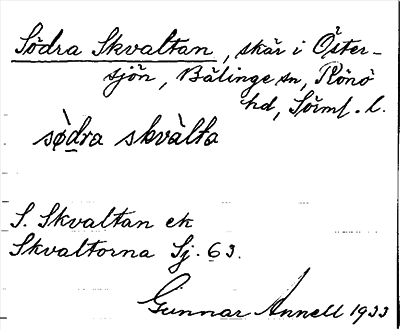 Södra Skvaltan, skär i Öster-
sjön, Bälinge sn, Rönö
hd, Sörml. l.
sø̀dra skvàlta
S. Skvaltan ek
Skvaltorna Sj. 63.
Gunnar Annell 1933